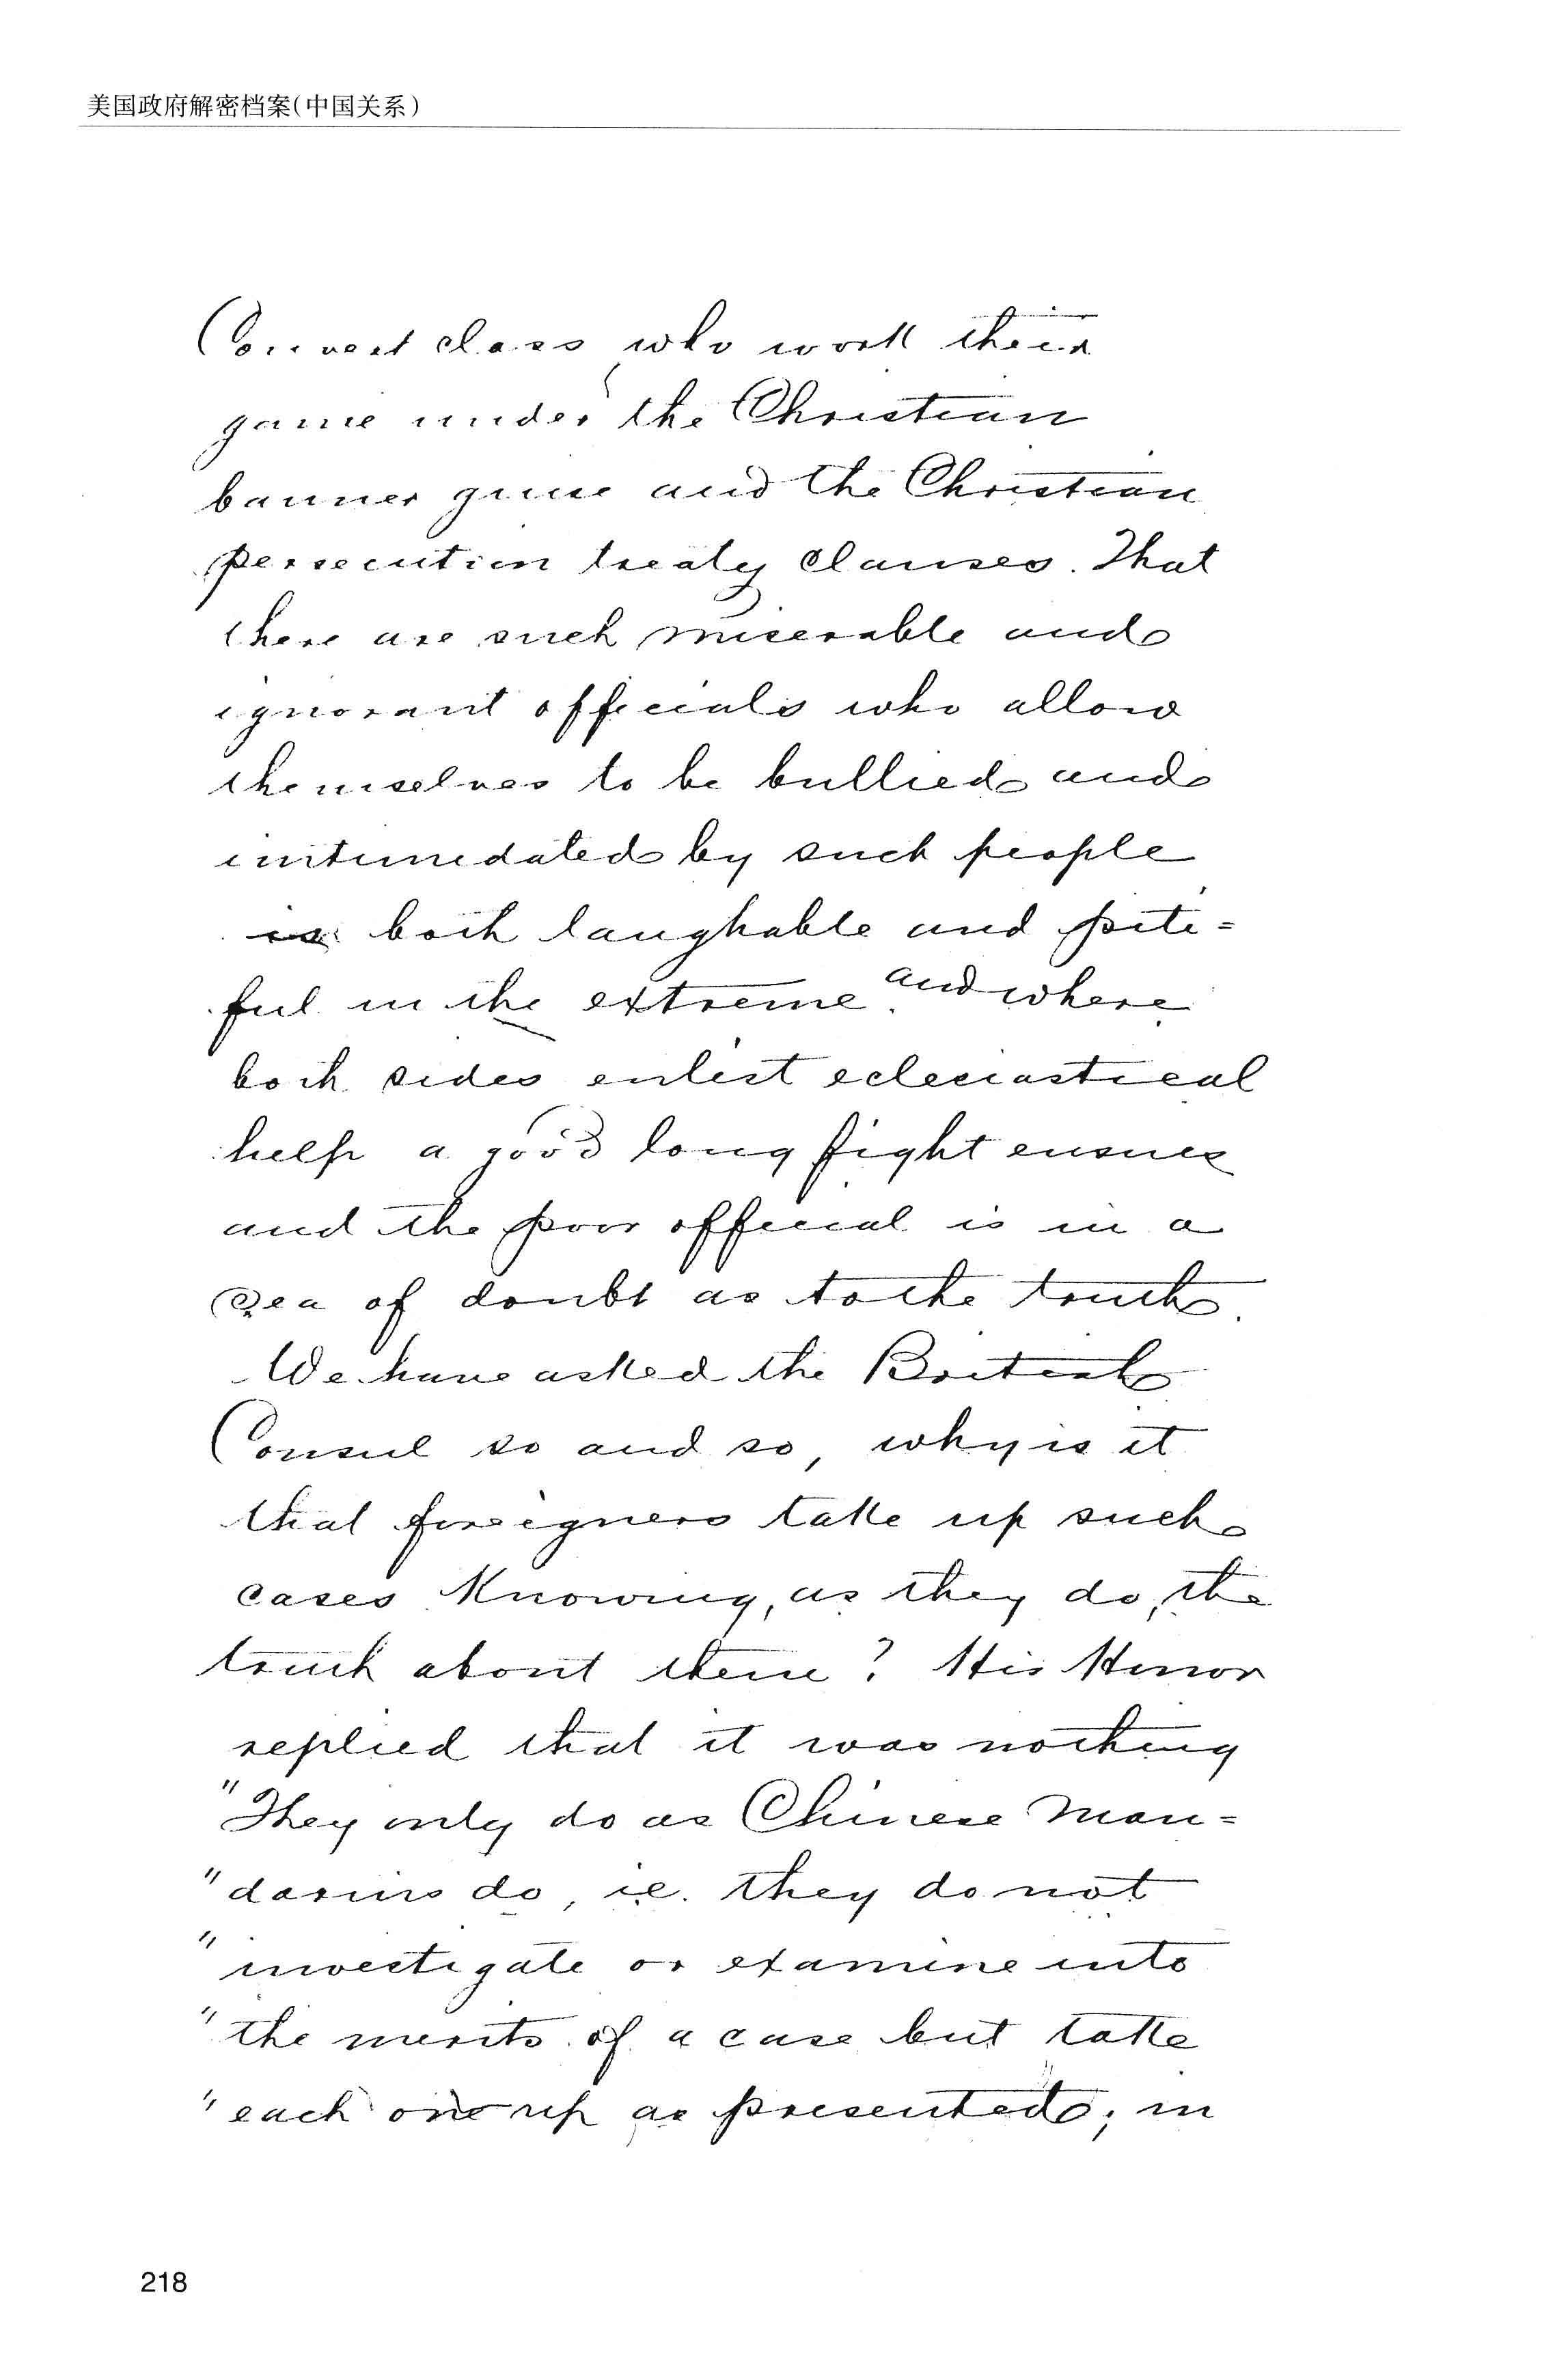 美国政府解密档案(中国关系)
Convert class who work their
game under the Christian
banner guise and the Christian
persecution treaty clauses. That
there are such miserable and
ignorant officials who allow
themselves to be bullied and
intimidated by such people
is both laughable and piti=
ful in the extreme and where
both sides enlist eclesiastical
help a good long fight ensues
and the poor official is in a
sea of doubt as to the truth.
We have asked the British
Consul so and so, why is it
that foreigners take up such
cases knowing, as they do, the
truth about them? His Honor
replied that it was nothing
"They only do as Chinese Man=
"darins do, i.e. they do not
"investigate or examine into
"the merits of a case but take
"each one up as presented; in
218